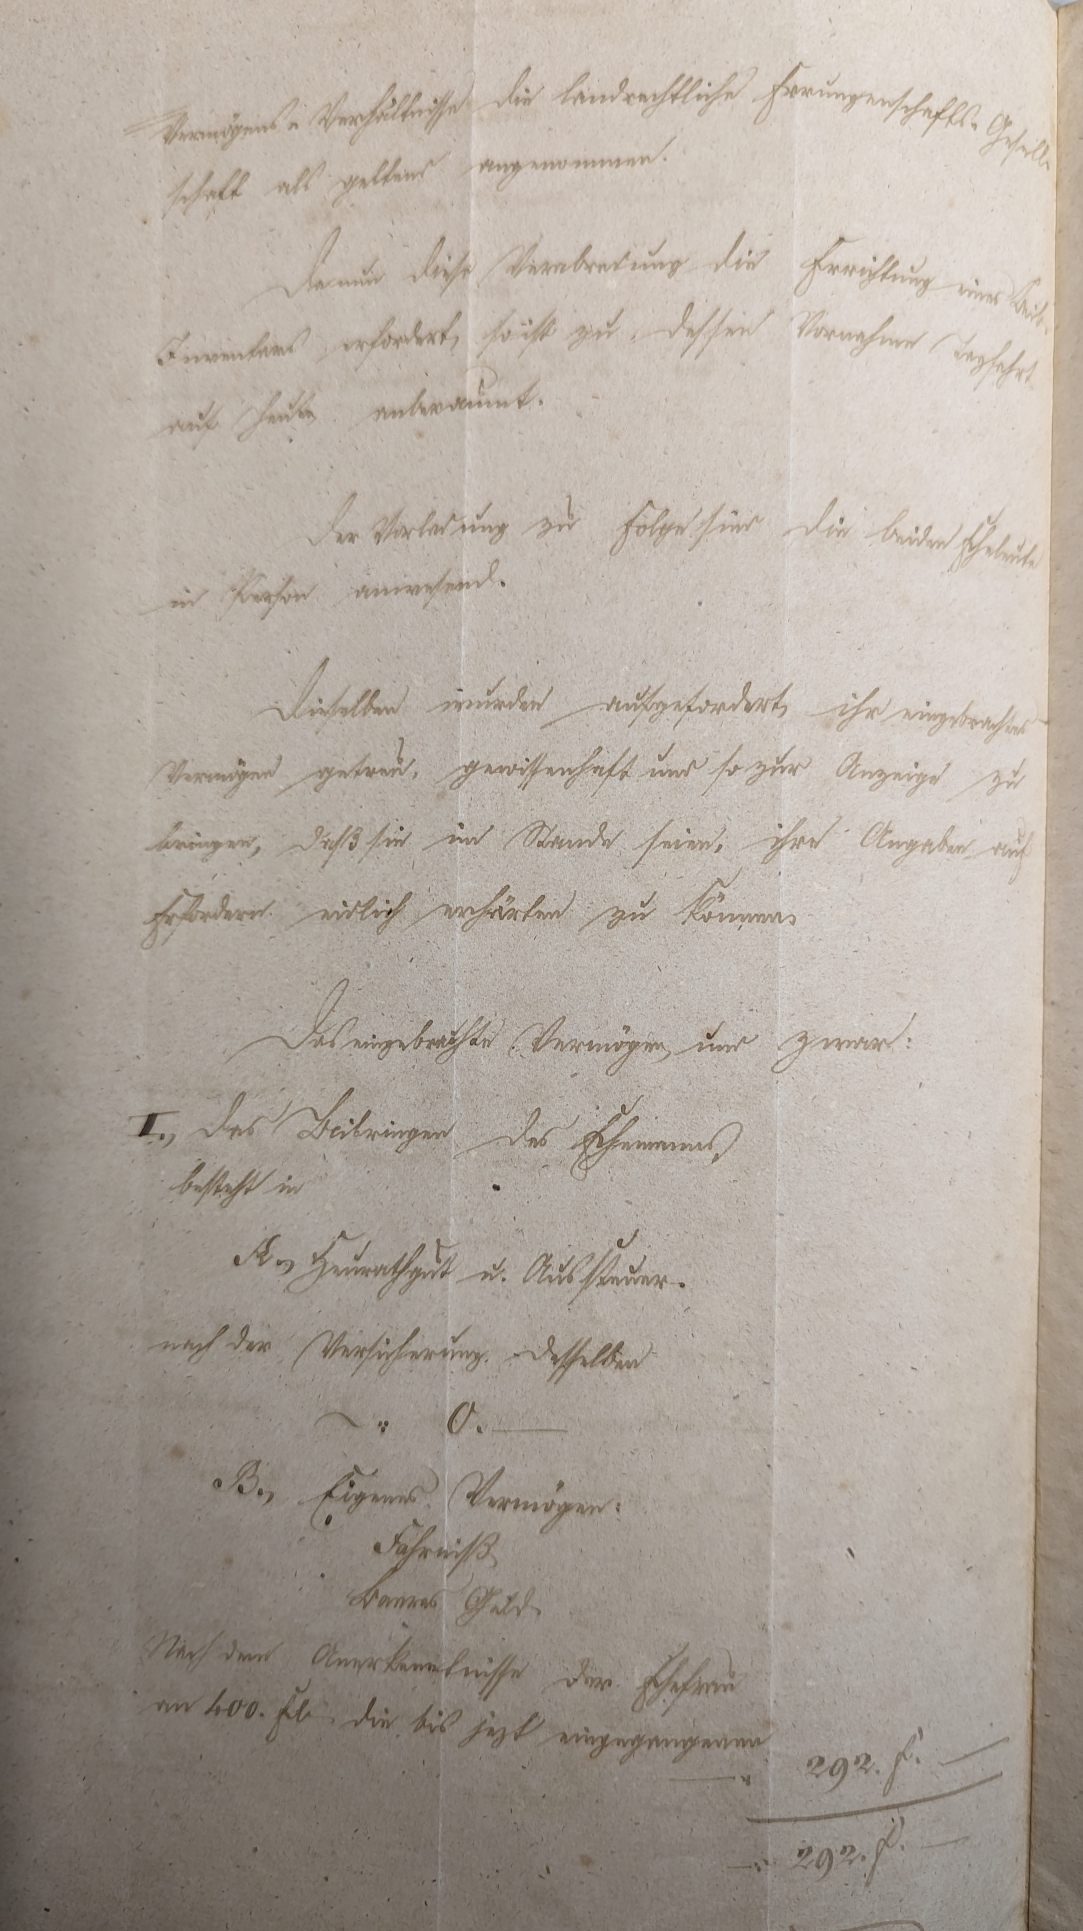 Vermögens-Verhältnisse die landrechtliche Errungenschafts-Gesell-
schaft als geltend angenommen.
Da nun diese Verabredung die Errichtung eines Beib.
Inventars erfordert, so ist zu dessen Vornahme Tagfahrt
auf heute anberaumt.
Der Vorladung zu Folge sind die beiden Eheleute
in Person anwesend.
Dieselben wurden aufgefordert, ihr eingebrachtes
Vermögen getreu, gewissenhaft und so zur Anzeige zu
bringen, daß sie im Stande seien, ihre Angaben auf
Erfordern eidlich erhärten zu können.
Das eingebrachte Vermögen und zwar:
I., Das Beibringen des Ehemanns,
besteht in
A., Heurathgut u. Aussteuer.
nach der Versicherung desselben
~ " 0. —
B., Eigenes Vermögen:
Fahrniß
baares Geld
Nach dem Anerkenntnisse der Ehefrau
an 400. fl. die bis jezt eingegangenen
— " 292. f. —
— " 292. f. —